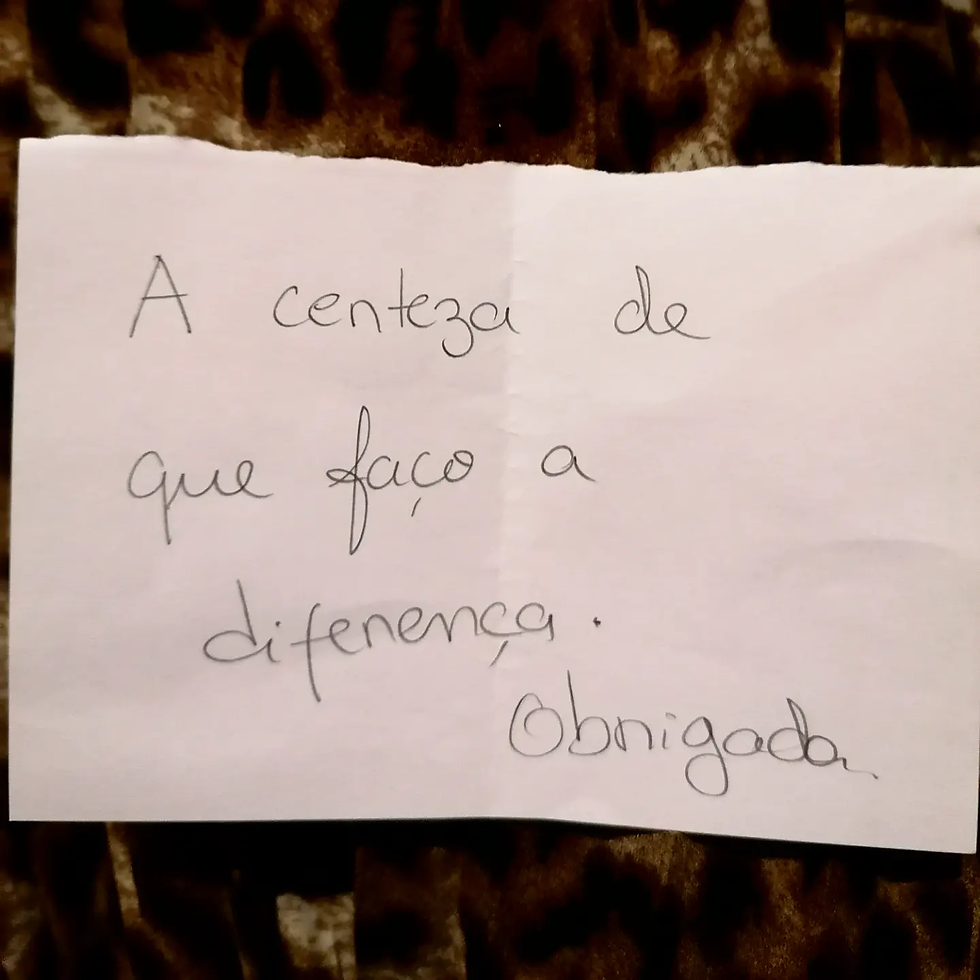 A certeza de
que faço a
diferença.
Obrigada.